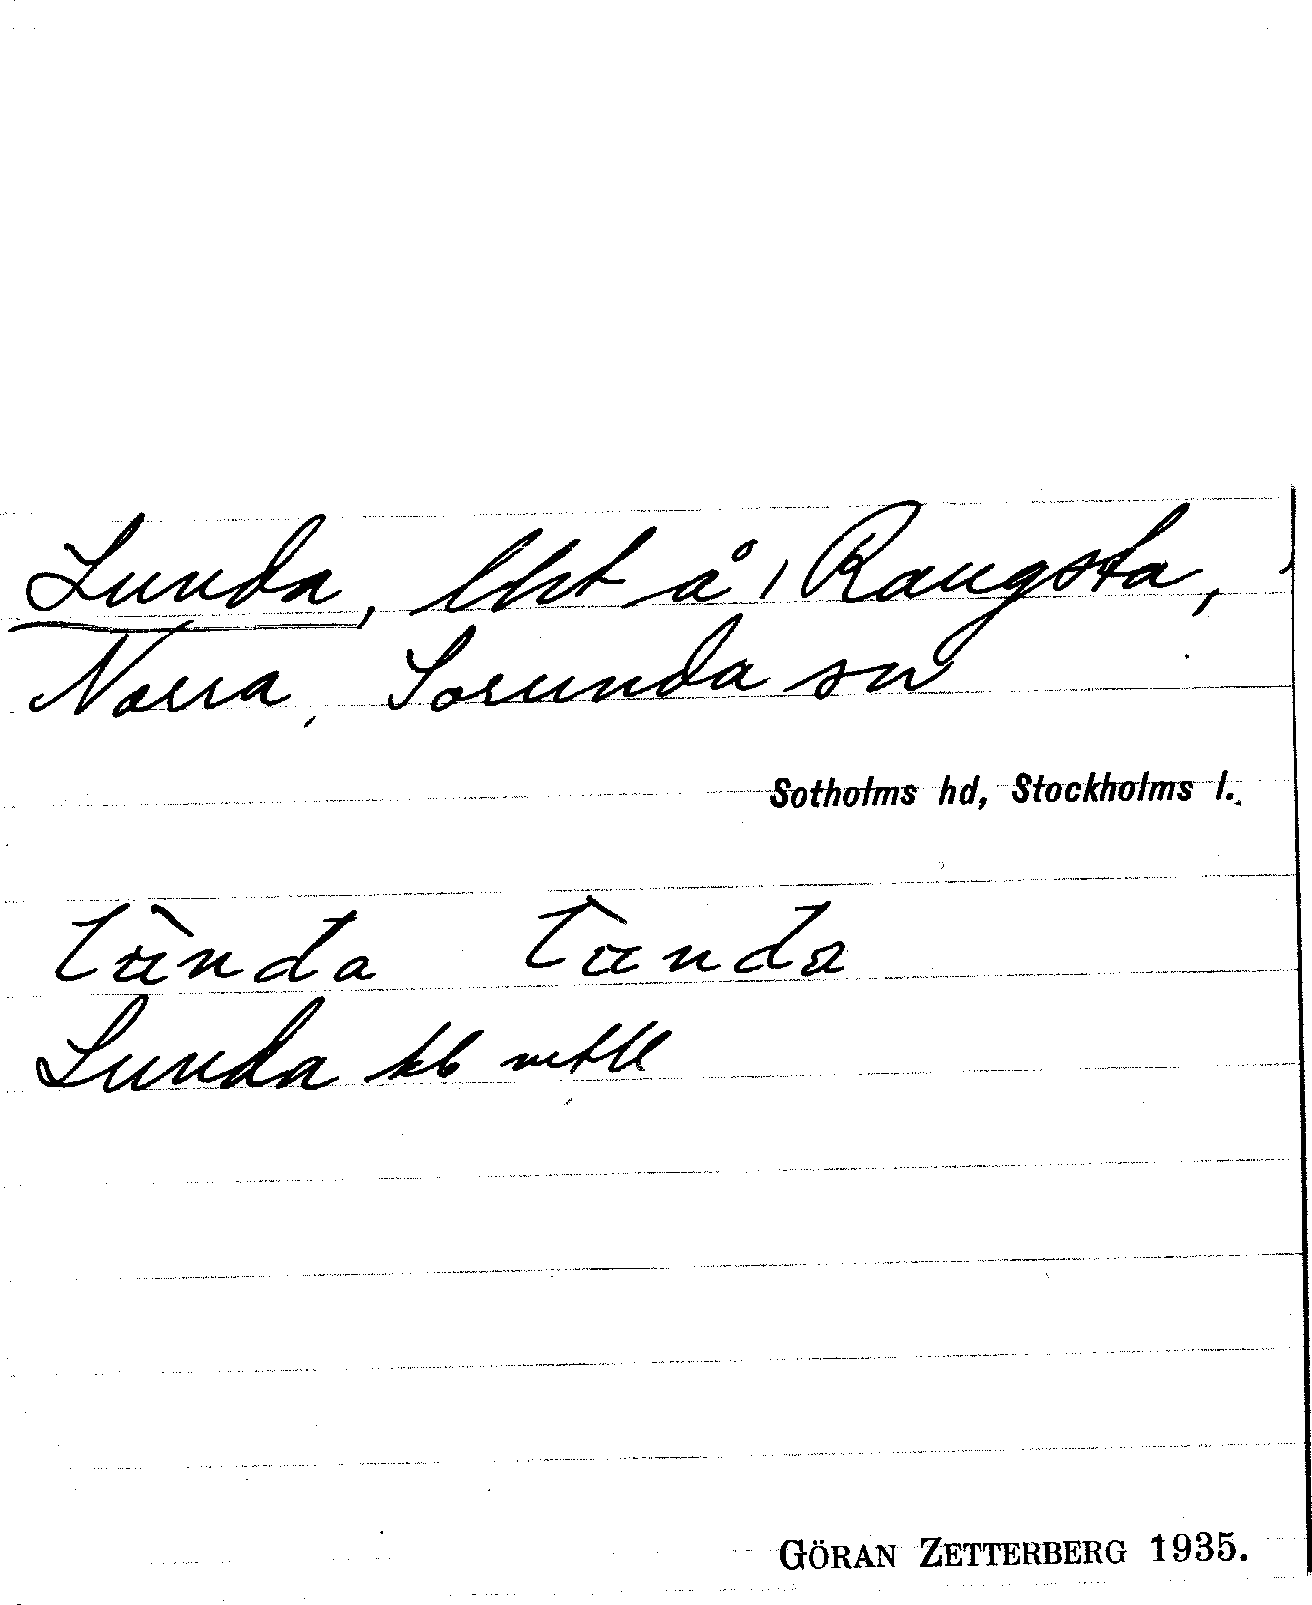 Lunda, lht å, Rangsta,
Norra, Sorunda sn
Sotholms hd, Stockholms l.
Lunda kb
GÖRAN ZETTERBERG 1935.